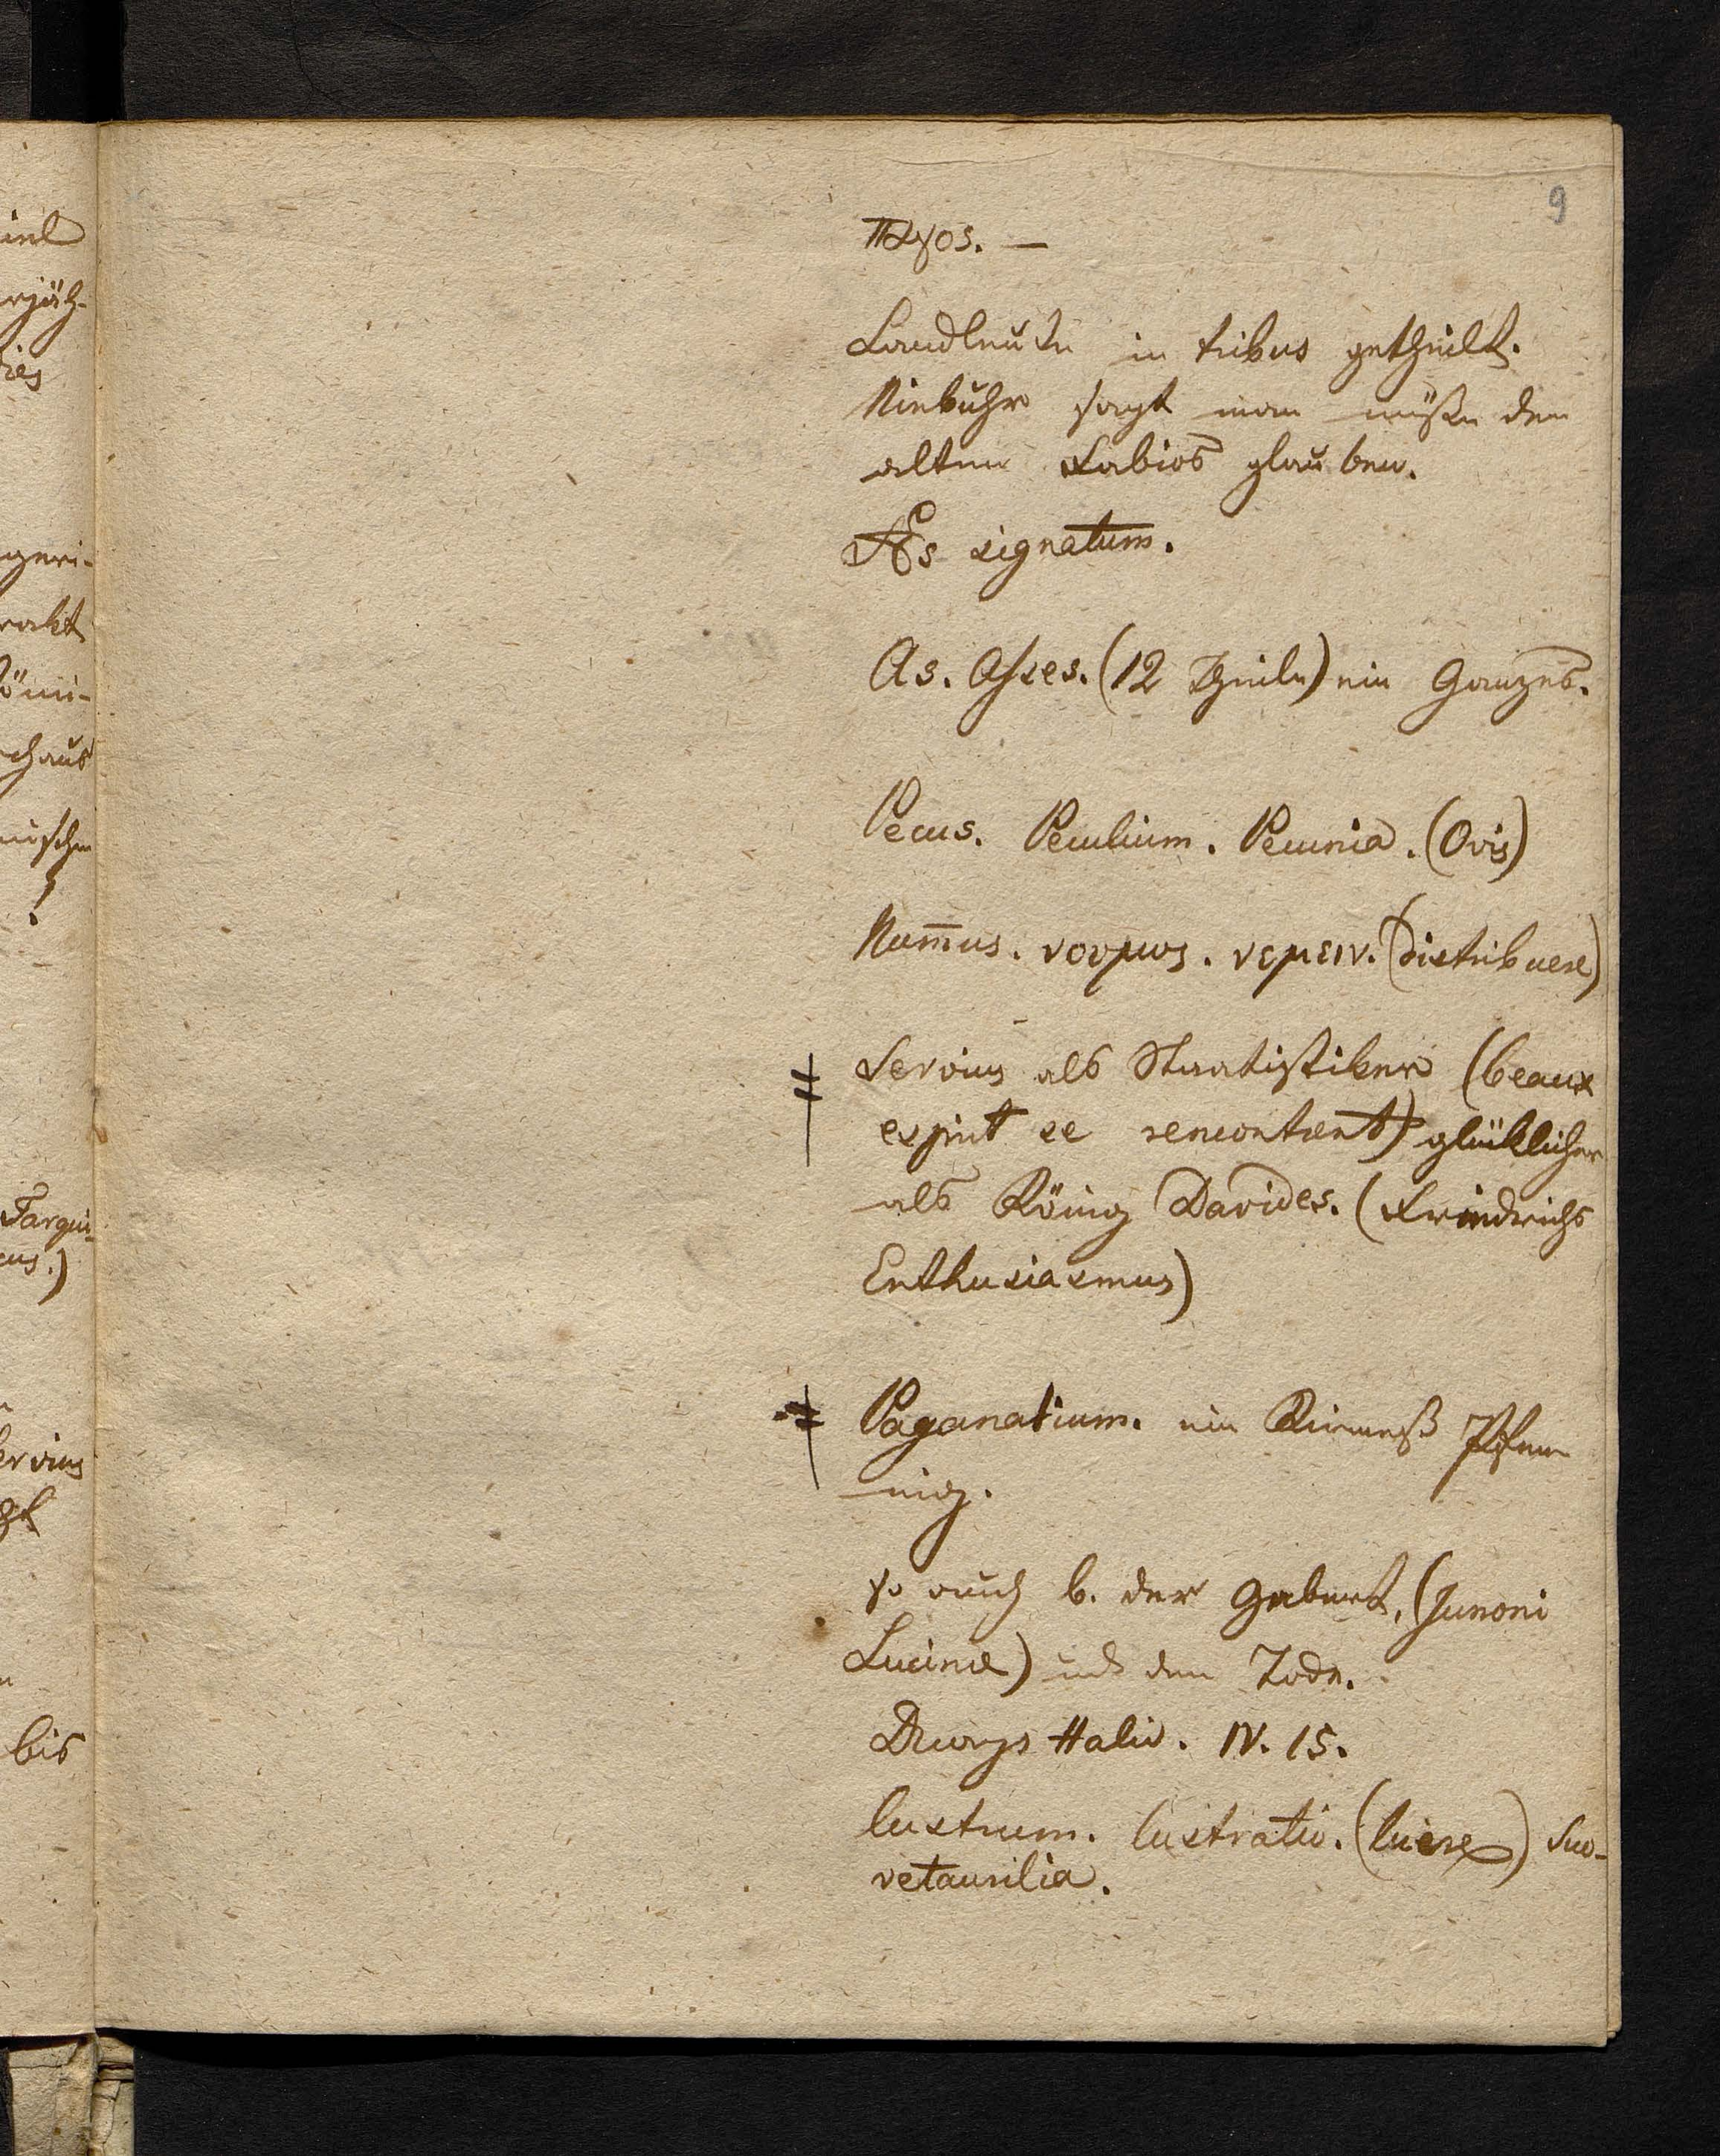 9
παγος. —
Landleute in tribus getheilt.
Niebuhr sagt man müße den
alten Fabios glauben.
Æs signatum.
As. Asses. (12 Theile) ein Ganzes.
Pecus. Peculium. Pecunia. (Ovis)
Num̄us. νουμος. νεμειν. (distribuere)
Servius als Staatistiker (beaux
esprit se rencontrent) glüklicher
als König Davides. (Friedrichs
Enthusiasmus)
Paganalium. ein Kirmeß Pfen
nig.
so auch b. der Geburt, (Junoni
Lucinæ) und dem Tode.
Dionys Halic. IV. 15.
lustrum. lustratio. (luere) Suo-
vetaurilia.